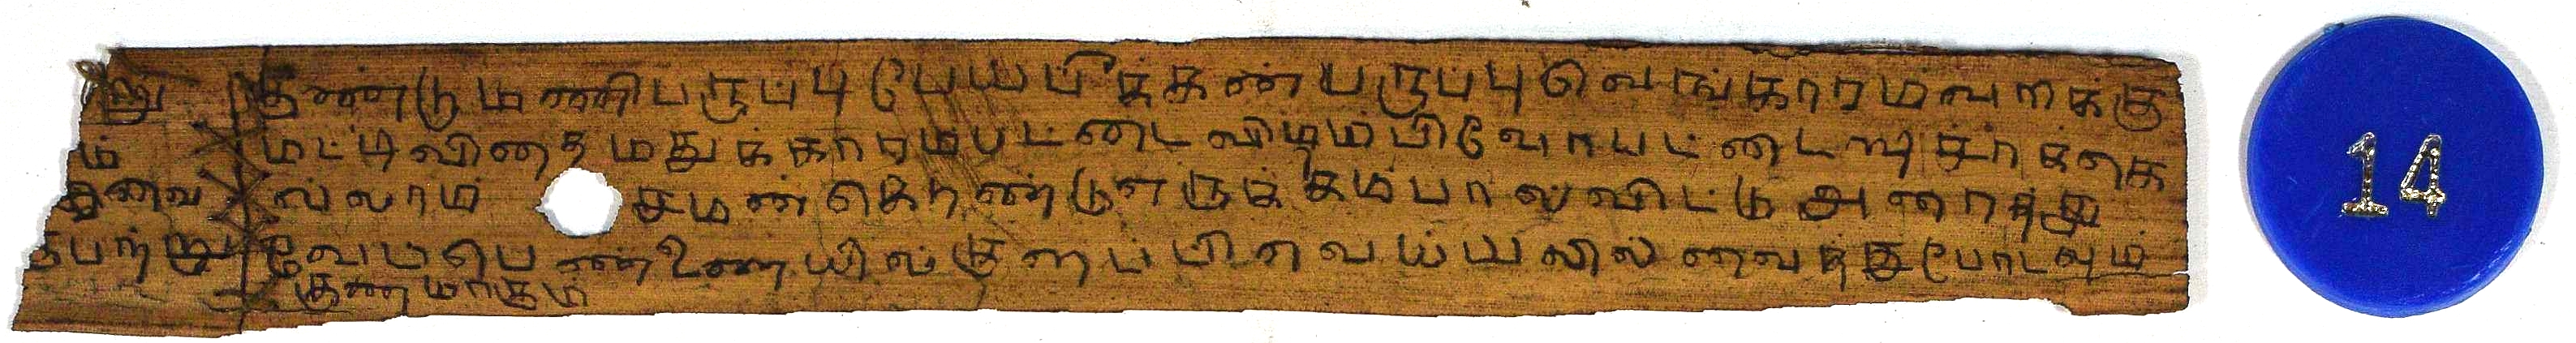 று குண்டுமணிபருப்பு பேயபீக்கன் பருப்பு வெங்காரம் வாக்கு
ம் மட்டிவினத மதுக்காரம்பட்டை விடிம்பிவோபட்டை
தவை ல்லாம் சமன்கொண்டு எருக்கம்பால்விட்டு அரைத்து
பற்று வேப்பெண்ணையில் குளப்பி வய்யலில் வைத்து போடவும்
குணமாகும்
14